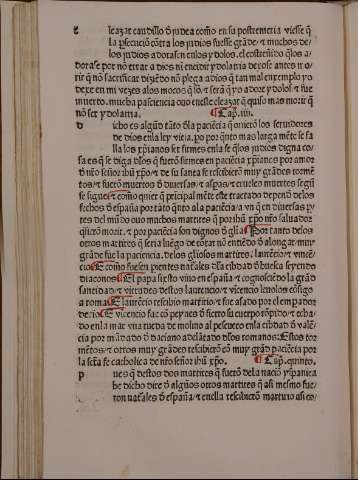 E leazar caudillo d̉ judea como en su postremeria viesse q̃
la p̃secucion cõtra los judios fuesse grãde: ⁊ muchos de/
los judios adorasen culos y dolos. el costreñido q̃los a-
dorase por nõ errar a dios ni encidir ydolatria
ri q̃ nõ sacrificar diziẽdo nõ plega a dios q̃ tan mal enxemplo yo
dexe en mi vejez alos moços q̃ los ⁊ será q̃ yo adore y dolos ⁊ fue
muerto. mucha pasciencia ouo eneste eleazar q̃ quiso mas morir q̃
nõ ser ydolatria. ¶Cap. iiij.
D icho es algũd tãto d̃la paciẽcia q̃ ouierõ los seruidores
de dios enla ley vieja. po por q̃nto mas larga mẽte se fa
lla los xp̃ianos ser firmes enla fe q̃los judios digna co/
sa es q̃ se diga d̃los q̃ fuerõ firmes en paciẽcia xp̃ianos por amor
d̃ nr̃o señor ihũ xp̃o/ ⁊ de su santa fe rescibierõ muy grãdes tormẽ
tos/ ⁊ fuerõ muertos d̃ diuersas/ ⁊ aspas/ ⁊ crueles muertes segũ
se sigue/ ⁊ como quier q̃ principal mẽte este tractado depend delos
fechos d̃ españa por tãto q̃nto ala paciẽcia/ a vn q̃ en diuersas p̃
tes del mũdo ouo muchos martires q̃ por ihũ xp̃o nr̃o saluador
q̃sierõ morir. ⁊ por paciẽcia son dignos d̃ gl̃ia ¶Por tanto delos
otros martires q̃ seria luẽgo de cõtar nõ entiẽdo d̃ alongar. muy
grãde fue la paciencia. delos gl̃iosos martires. laurẽcio/ ⁊ vincẽ/
cio ¶E como fuesen parientes naturales d̃la cibdad d̃ huesca seyendo
diaconos ¶El papa sixsto vino en españa/ ⁊ cognosciẽdo la grãd
sanctidad/ ⁊ virtudes destos laurencio/ ⁊ vicencio leuolos cõsigo
a roma ¶E laurẽcio rescibio martirio/ ⁊ fue asado por el emperador
decio ¶E vicencio fue cõ peynes d̃ fierro su cuerpo rõpido/ ⁊ echa-
do enla mar vna rueda de molino al pescueço enla cibdad d̃ valẽ/
cia por mãdado d̃ daciano adelãtado d̃los romanos: Estos tor
mẽtos/ ⁊ otros muy grãdes rescibierõ cõ muy grãd paciẽcia por
la sctã fe catholica de nr̃o señor ihũ xp̃o. ¶Cap. quinto.
P ues q̃ destos dos martires q̃ fuerõ dela naciõ yspanica
he dicho dire d̃ algũos otros martires q̃ asi mesmo fue
ron naturales d̃ españa/ ⁊ enella rescibierõ martirio asi co/